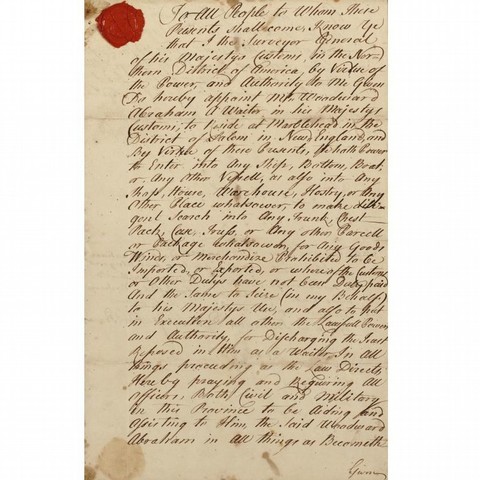 To All People to Whom These
Presents Shall come, Know Ye
that I the Surveyor General
of his Majestys Customs, in the Nor-
thern District of America, by Virtue of
the Power, and Authority to Me Given
Do hereby appoint Mr. Woodward
Abraham A Waiter in his Majestys
Customs, to Reside at Marblehead in the
District of Salem in New England, and
By Virtue of these Presents, he hath Power
to Enter into Any Ship, Bottom, Boat
or, Any Other Vessell, as also into Any
Shop, House, Warehouse, Hostry, or Any
Other Place whatsoever, to make dili-
gent Search into Any Trunk Chest
Pack Case, Truss, or Any other Parcell
or Package whatsoever, for Any Goods
Wines, or Merchandize Prohibited to be
Imported, or Exported, or whereof the Customs
or Other Dutys have not been Duly paid
And the Same to Seize (in my Behalf)
to his Majestys Use, and also to Put
in Execution all other the Lawfull Powers
and Authority, for Discharging the Trust
Reposed in Him as a Waiter In All
things proceeding as the Law Directs
Hereby praying and Requiring All
officers Both Civil and Military
in this Province to be Aiding and
Assisting to Him, the Said Woodward
Abraham in All things as Becometh
Given